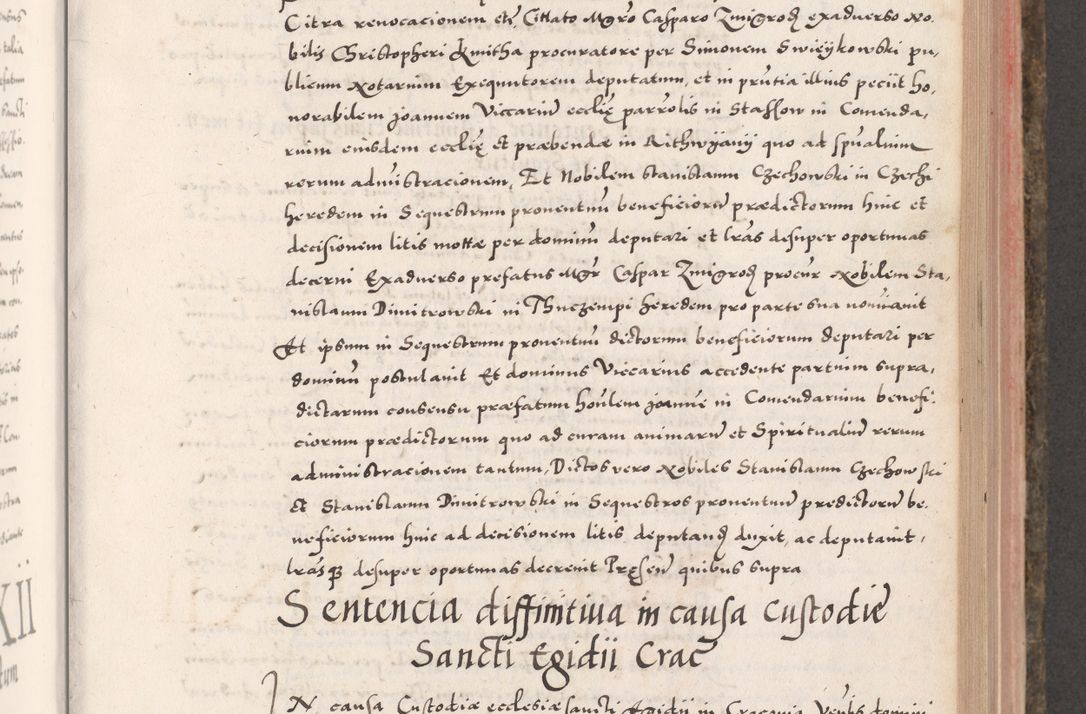 Citra revocacionem etc̃ Cittato Mgr̃o Casparo Zmigrod exadverso No,
bilis Christopheri Kmitha procuratore per Simonem Swieÿkowski pu,
blicum Notarium Exequutorem deputatum, et in prñtia illius peciit ho,
norabilem Joannem Viccariũ eccliȩ parrolis in Stassow in Comenda,
rium eiusdem eccliȩ et præbendæ in Rithwÿanÿ quo ad spũalium
rerum administracionem, Et Nobilem Stanislaum Czechowski in Czechi
heredem in Sequestrum proventuũ beneficiorũ prædictorum huic et
decisionem litis mottæ per dominũ deputari et lr̃as desuper oportunas
decerni Exadverso prefatus Mgr̃ Caspar Zmigrod procur̃ Nobilem Sta,
nislaum Dimitrowski in Thuczempi heredem pro parte sua nominavit
Et ipsum in Sequestrum proventuũ dictorum beneficiorum deputari per
dominũ postulavit Et dominus Viccarius accedente partium supra,
dictarum consensu præfatum honlem Joannẽ in Comendarium benefi,
ciorum prædictorum quo ad curam animarũ et Spiritualiũ rerum
administracionem tantum, Dictos vero Nobiles Stanislaum Czechowski
et Stanislaum Dimitrowski in Sequestros proventuũ predictorũ be,
neficiorum huic ad decisionem litis deputand duxit, ac deputavit,
lr̃asq̃ desuper oportunas decrevit Pręsen̄ quibus supra
Sentencia diffinitiva in causa Custodiẽ
Sancti Egidii Crac̃
IN causa Custodiæ ecclesiæ sancti Egidii in Cracovia Ven̄bs domini